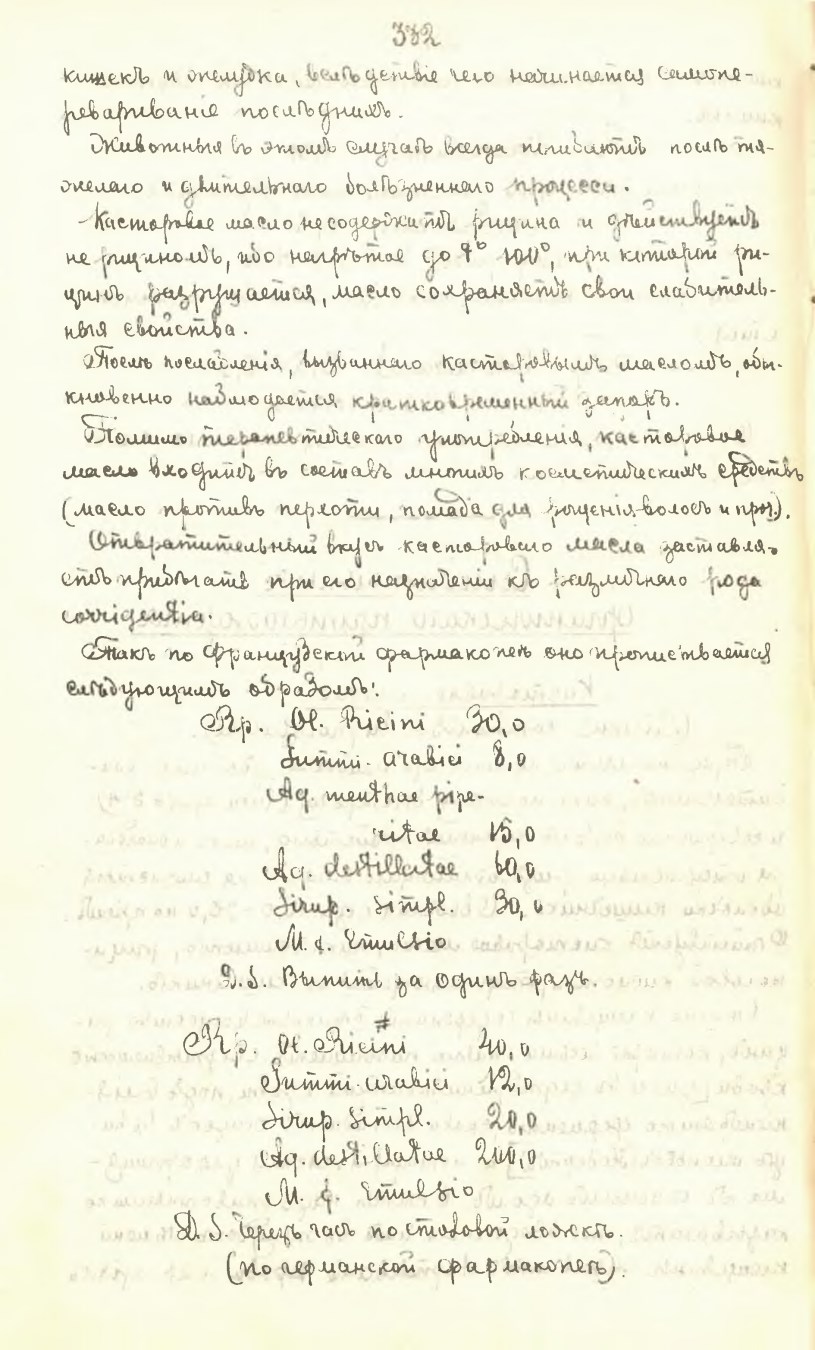 332
кишекъ и желудка, вслѣдствіе чего начинается самопе-
ревариваніе послѣднихъ.
Животныя въ этомъ случаѣ всегда погибаютъ послѣ тя-
желаго и длительнаго болѣзненнаго процесса.
Касторовое масло не содержитъ рицина и дѣйствуетъ
не рициномъ, ибо нагрѣтое до t° 100°, при которой ри-
цинъ разрушается, масло сохраняетъ свои слабитель-
ныя свойства.
Послѣ послабленія, вызваннаго касторовымъ масломъ, обы-
кновенно наблюдается кратковременный запоръ.
Помимо терапевтическаго употребленія, касторовое
масло входитъ въ составъ многихъ косметическихъ средствъ
(масло противъ перхоти, помада для рощенія волосъ и проч.).
Отвратительный вкусъ касторового масла заставля-
етъ прибѣгать при его назначеніи къ различнаго рода
corrigentia.
Такъ по французской фармакопеѣ оно прописывается
слѣдующимъ образомъ:
Rp. Ol. Ricini 30,0
Gummi arabici 8,0
Aq. menthae pipe-
ritae 15,0
Aq. destillatae 60,0
Sirup. simpl. 30,0
M. f. Emulsio
D.S. Выпить за одинъ разъ.
#
Rp. Ol. Ricini 40,0
Gummi arabici 12,0
Sirup. simpl. 20,0
Aq. destillatae 200,0
M. f. Emulsio
D. S. Черезъ часъ по столовой ложкѣ.
(по германской фармакопеѣ).